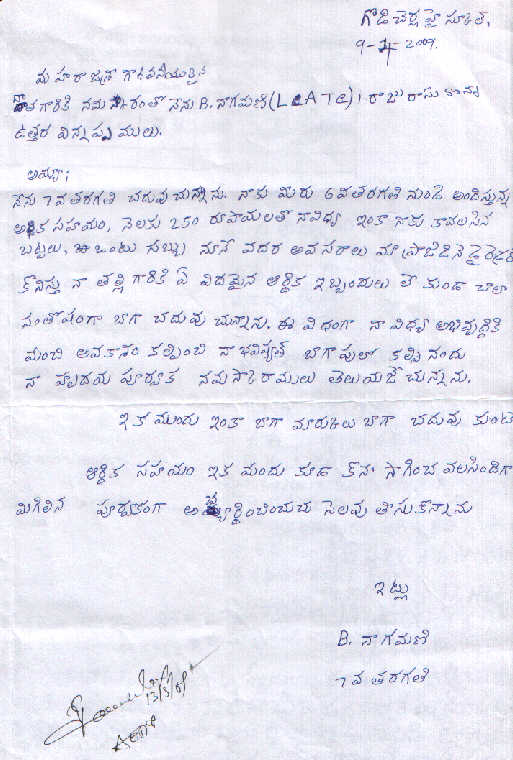 గొడిచెర్ల హై స్కూల్,
9-4-2009.
మహరాజశ్రీ గౌరవనీయులైన
దాతగారికి నమస్కారంతో నేను B. నాగమణి (LCATC) రాజు రాసుకొన్న
ఉత్తర విన్నప్పములు.
అయ్యా;
నేను 7వ తరగతి చదువుచున్నాను. నాకు మీరు 6వతరగతి నుండి అందిస్తున్న
ఆర్థిక సహయం, నెలకు 250 రూపాయలతో నావిద్య ఇంకా నాకు కావలసిన
బట్టలు, ఒంటు సబ్బు నూనే వదర అవసరాలు మా
నా తల్లి గారికి ఏ విదమైన ఆర్థిక ఇబ్బందులు లేకుండా చాలా
సంతోషంగా బాగా చదువుచున్నాను. ఈ విదంగా నా విద్య అభివృద్దికి
మంచి అవకాశం కల్పించి నా భవిష్యత్ బాగుపులో కల్పినందు
నా హృదయ పూర్వక నమస్కారములు తెలుయజేచున్నను.
ఇక ముందు ఇంకా బాగా మారుకులు బాగా చదువుకుంట
ఆర్థిక సహయం ఇక ముందు కూడా కొనసాగించ వలసిందిగా
మిగిలిన పూర్వకంగా సెలవు తీసుకొన్నాను
ఇట్లు
B. నాగమణి
7వ తరగతి
13/8/09